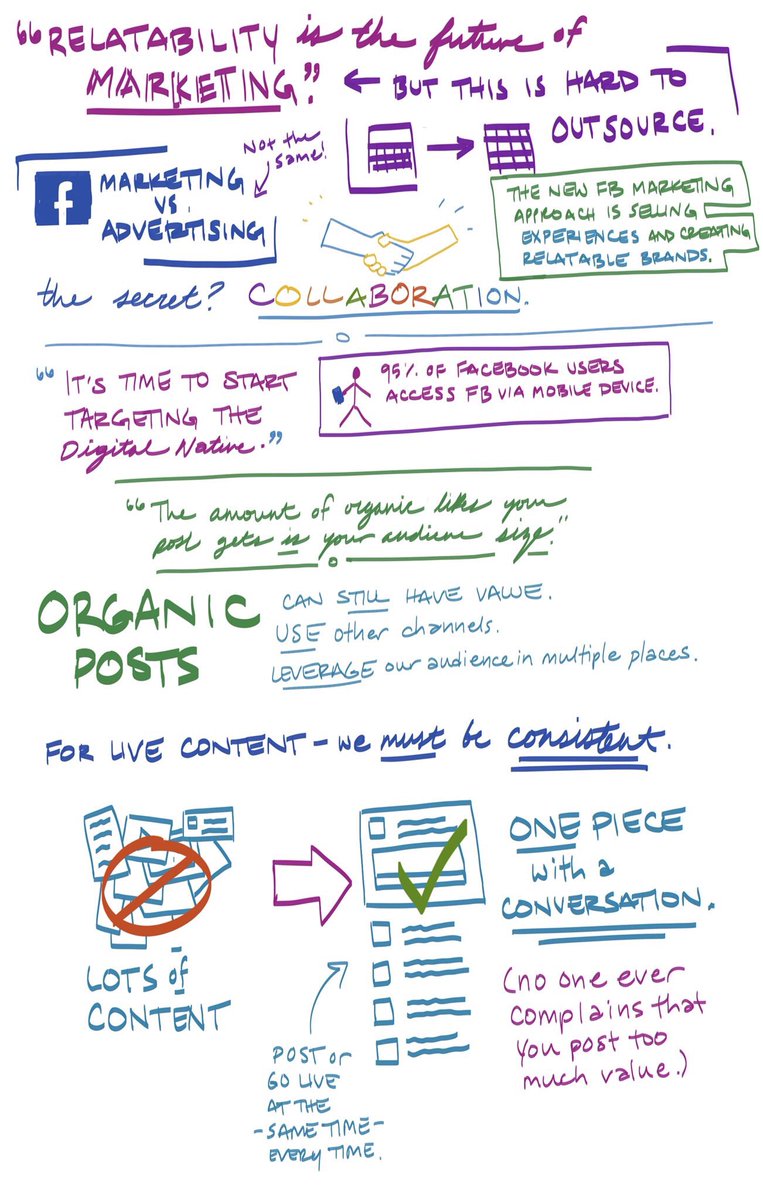 “RELATABILITY is the future of
MARKETING.” ← BUT THIS IS HARD TO
OUTSOURCE.
Not the
same!
f MARKETING
vs.
ADVERTISING
THE NEW FB MARKETING
APPROACH IS SELLING
EXPERIENCES AND CREATING
RELATABLE BRANDS.
the secret? COLLABORATION.
“IT'S TIME TO START
TARGETING THE
Digital Native.”
95% OF FACEBOOK USERS
ACCESS FB VIA MOBILE DEVICE.
“The amount of organic likes your
post gets is your audience size.”
ORGANIC
POSTS
CAN STILL HAVE VALUE.
USE other channels.
LEVERAGE our audience in multiple places.
FOR LIVE CONTENT – we must be consistent.
LOTS of
CONTENT
POST or
GO LIVE
AT THE
- SAME TIME -
EVERY TIME.
ONE PIECE
with a
CONVERSATION.
(no one ever
complains that
you post too
much value.)